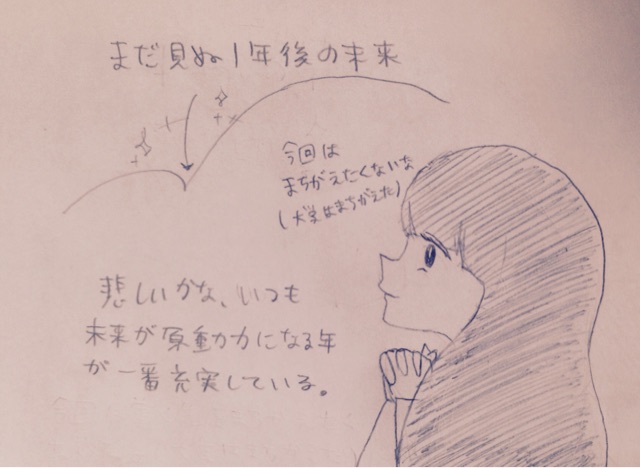 まだ見ぬ1年後の未来
今回は
まちがえたくないな
(大学はまちがえた)
悲しいかな、いつも
未来が原動力になる年
が一番充実している。